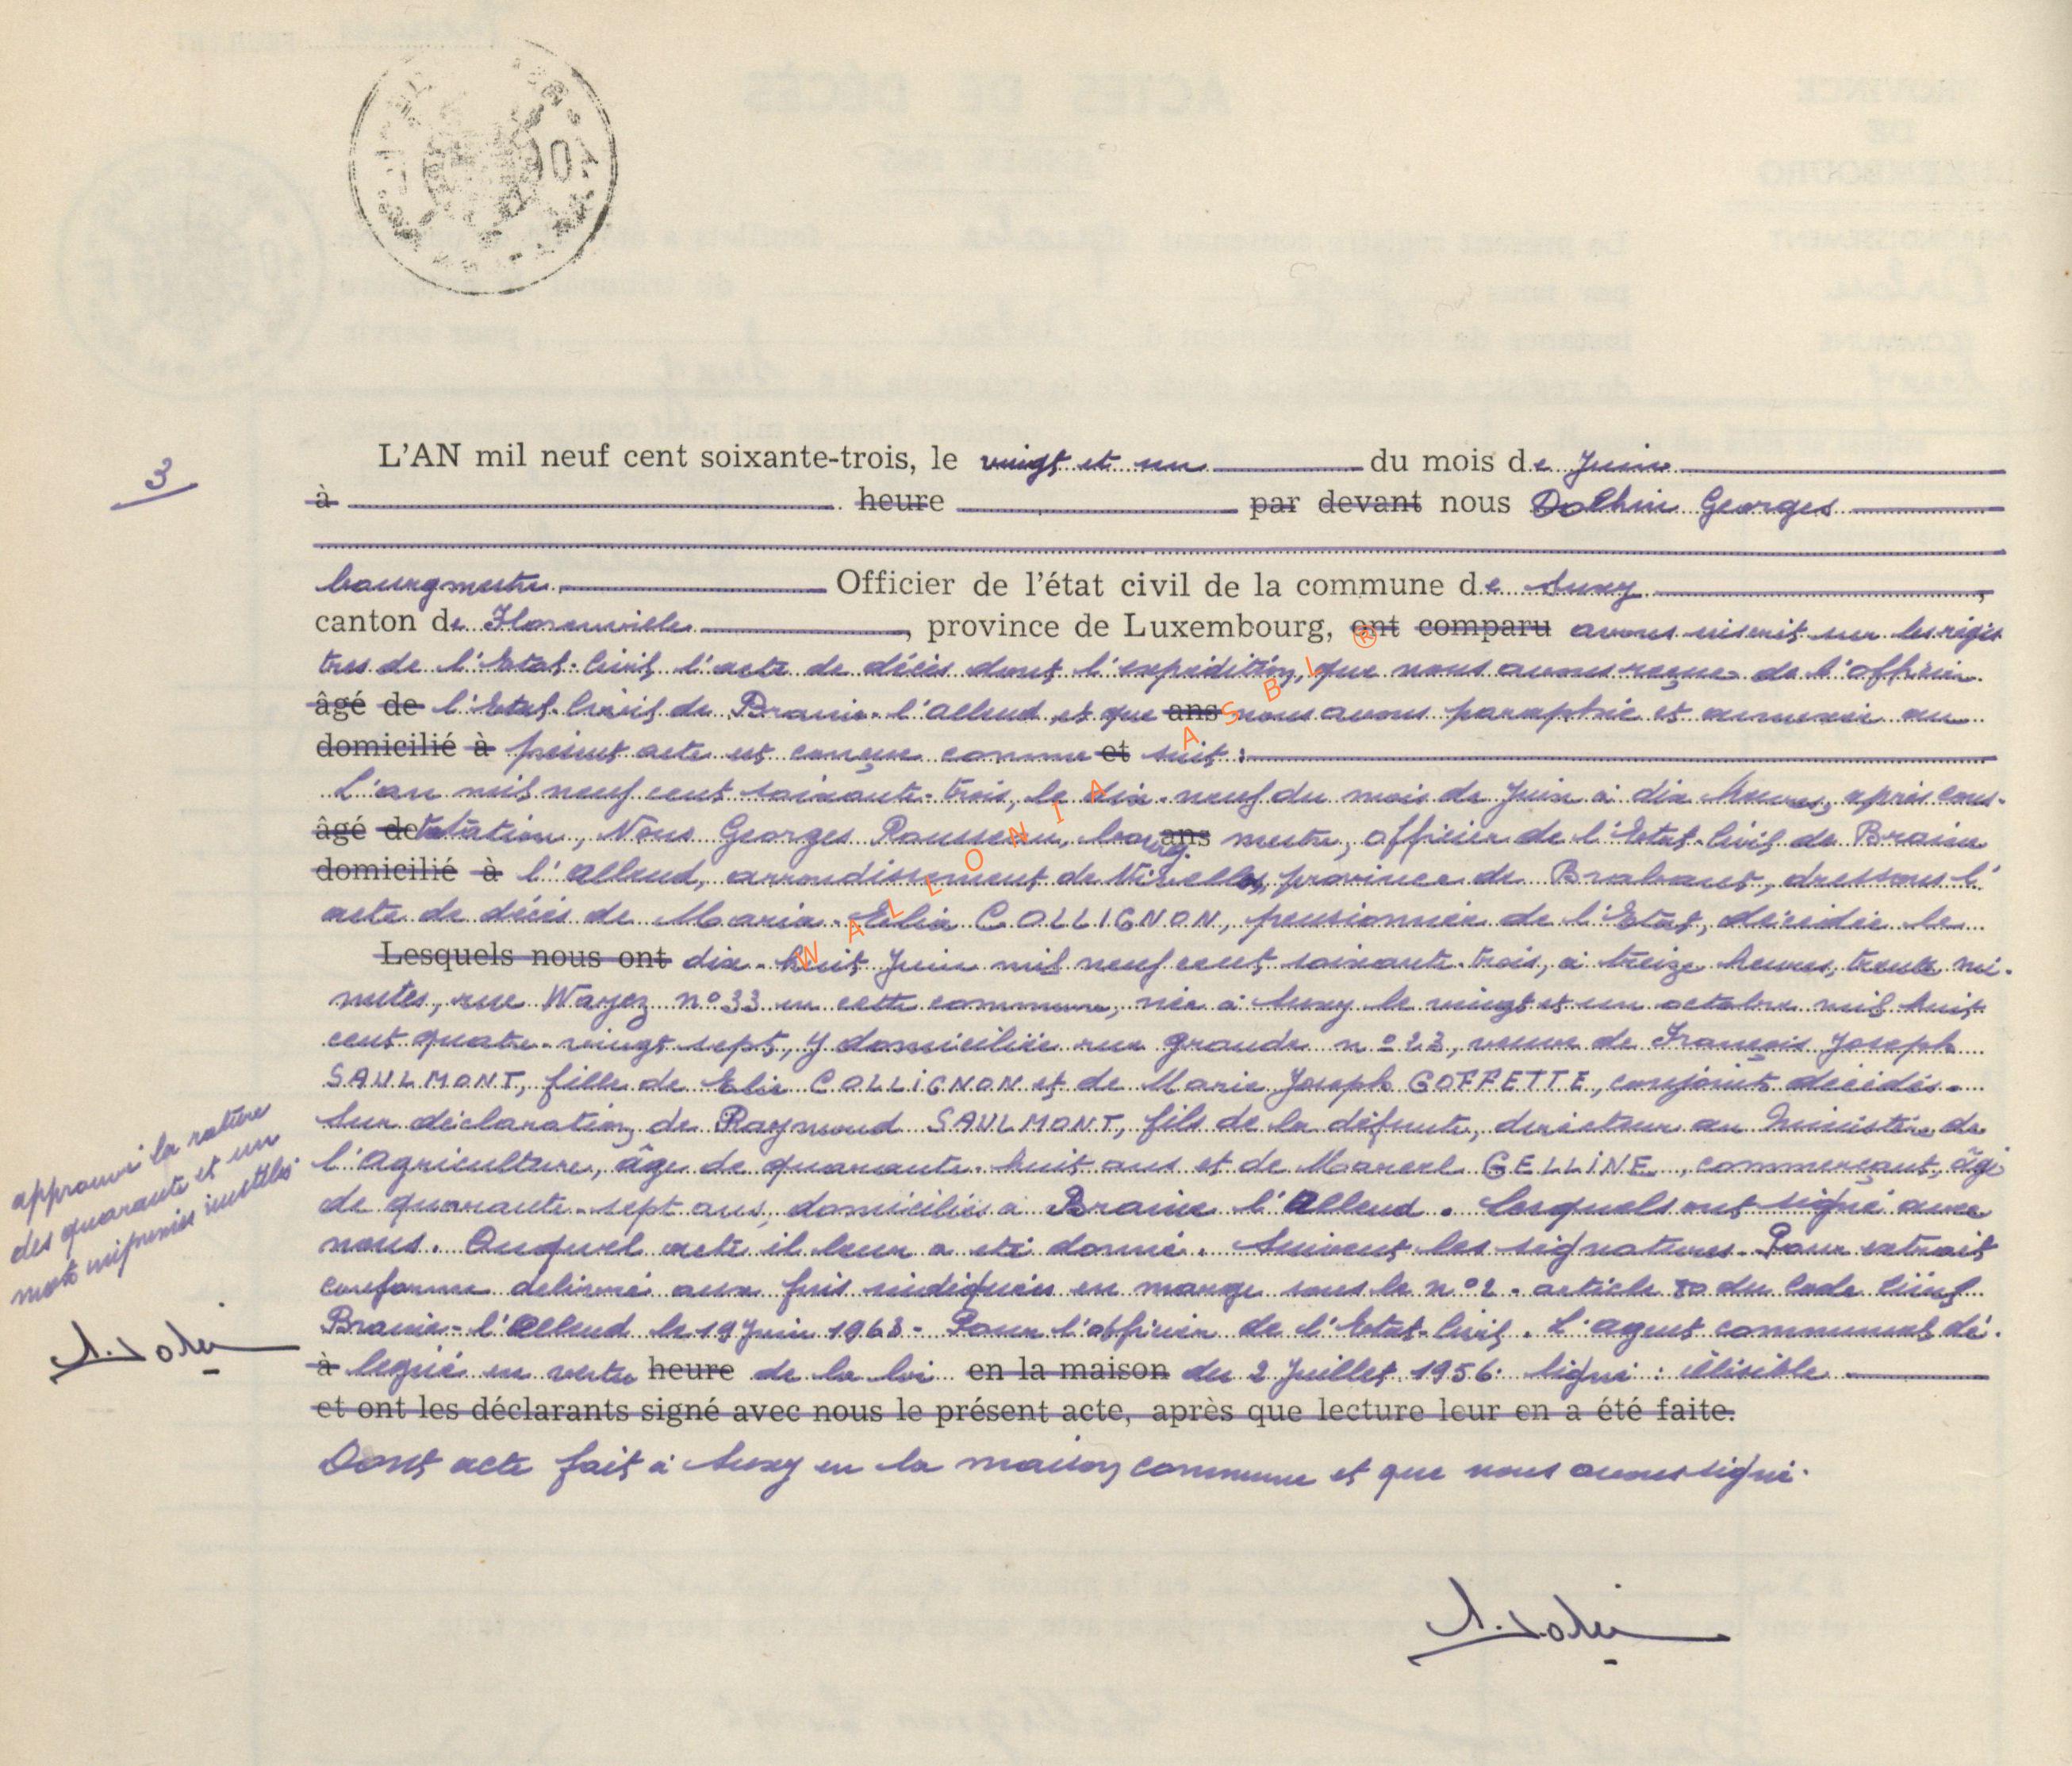 3
L'AN mil neuf cent soixante-trois, le vingt et un du mois de Juin
à heure par devant nous Dolhin Georges
bourgmestre Officier de l'état civil de la commune de Suxy,
canton de Florenville, province de Luxembourg, ont comparu avons inscrit sur les regis
tres de l'Etat-Civil l'acte de décès dont l'expédition, que nous avons reçue de l'officier
âgé de l'Etat-Civil de Braine-l'Alleud et que ans nous avons paraphée et annexée au
domicilié à présent acte est conçue comme et suit :
L'an mil neuf cent soixante-trois, le dix-neuf du mois de Juin à dix heures, après cons-
âgé de tatation, Nous Georges Rousseau, bourg ans mestre, officier de l'Etat-Civil de Braine
domicilié à l'Alleud, arrondissement de Nivelles, province de Brabant, dressons l'
acte de décès de Maria-Elia COLLIGNON, pensionnée de l'Etat, décédée le
Lesquels nous ont dix-huit Juin mil neuf cent soixante-trois, à treize heures, trente mi-
nutes, rue Wayez n° 33 en cette commune, née à Suxy le vingt et un octobre mil huit
cent quatre-vingt sept, y domiciliée rue grande n° 23, veuve de François Joseph
SAULMONT, fille de Elie COLLIGNON et de Marie Joseph GOFFETTE, conjoints décédés.
Sur déclaration de Raymond SAULMONT, fils de la défunte, directeur au Ministère de
l'Agriculture, âge de quarante-huit ans et de Marcel GELLINE, commerçant, âgé
de quarante-sept ans, domiciliés à Braine l'Alleud. Lesquels ont signé avec
nous. Duquel acte il leur a été donné. Suivent les signatures. Pour extrait
conforme délivré aux fins indiquées en marge sous le n° 2. article 80 du Code Civil
Braine-l'Alleud le 19 Juin 1963- Pour l'officier de l'Etat-Civil. L'agent communal dé-
à légué en vertu heure de la loi en la maison du 2 Juillet 1956. Signé : illisible
et ont les déclarants signé avec nous le présent acte, après que lecture leur en a été faite.
Dont acte fait à Suxy en la maison commune et que nous avons signé.
approuvé la rature
des quarante et un
mots imprimés inutiles
WALLONIA ASBL ®